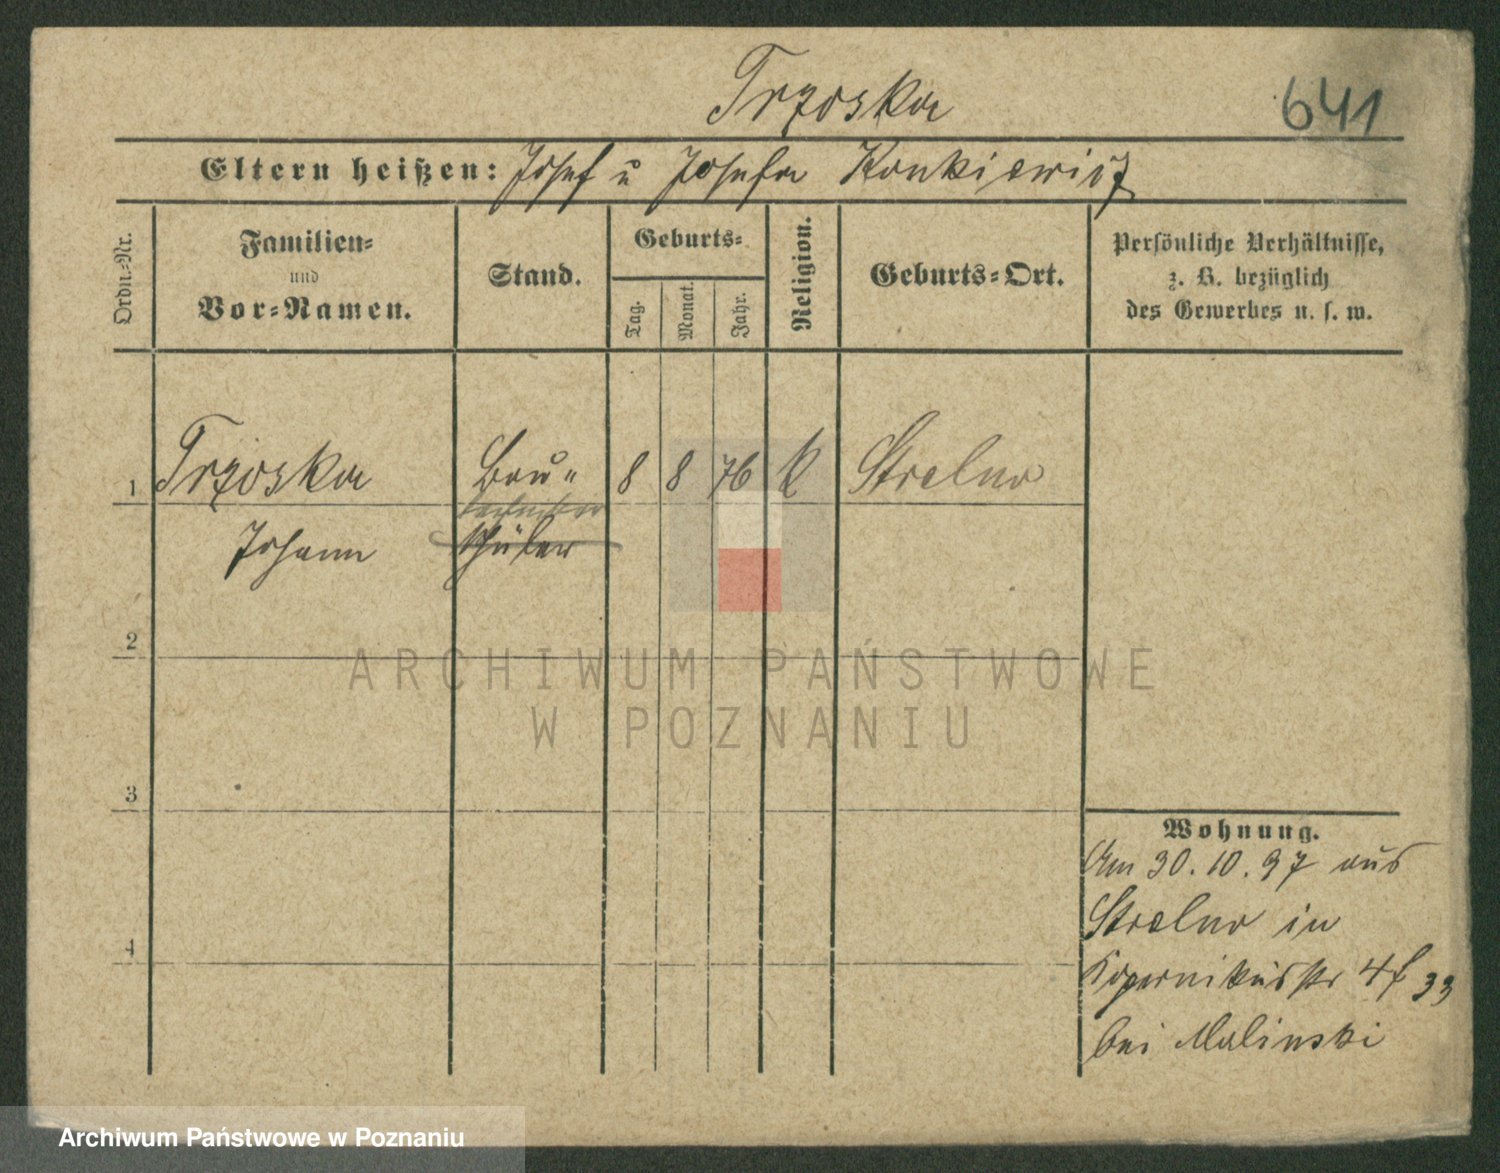 Trzoska
641
Eltern heißen: Josef u Josefa Konkiewicz
Ordn.-Nr.
Familien-
und
Vor-Namen.
Stand.
Geburts-
Tag.
Monat.
Jahr.
Religion.
Geburts-Ort.
Persönliche Verhältnisse,
z. B. bezüglich
des Gewerbes u. s. w.
1 Trzoska Bau- 8 8 76 k Strelno
techniker
Johann schüler
2
3
4
Wohnung.
Am 30. 10. 97 aus
Strelno in
Kopernikusstr 4 f 33
bei Malinski
ARCHIWUM PAŃSTWOWE
W POZNANIU
Archiwum Państwowe w Poznaniu